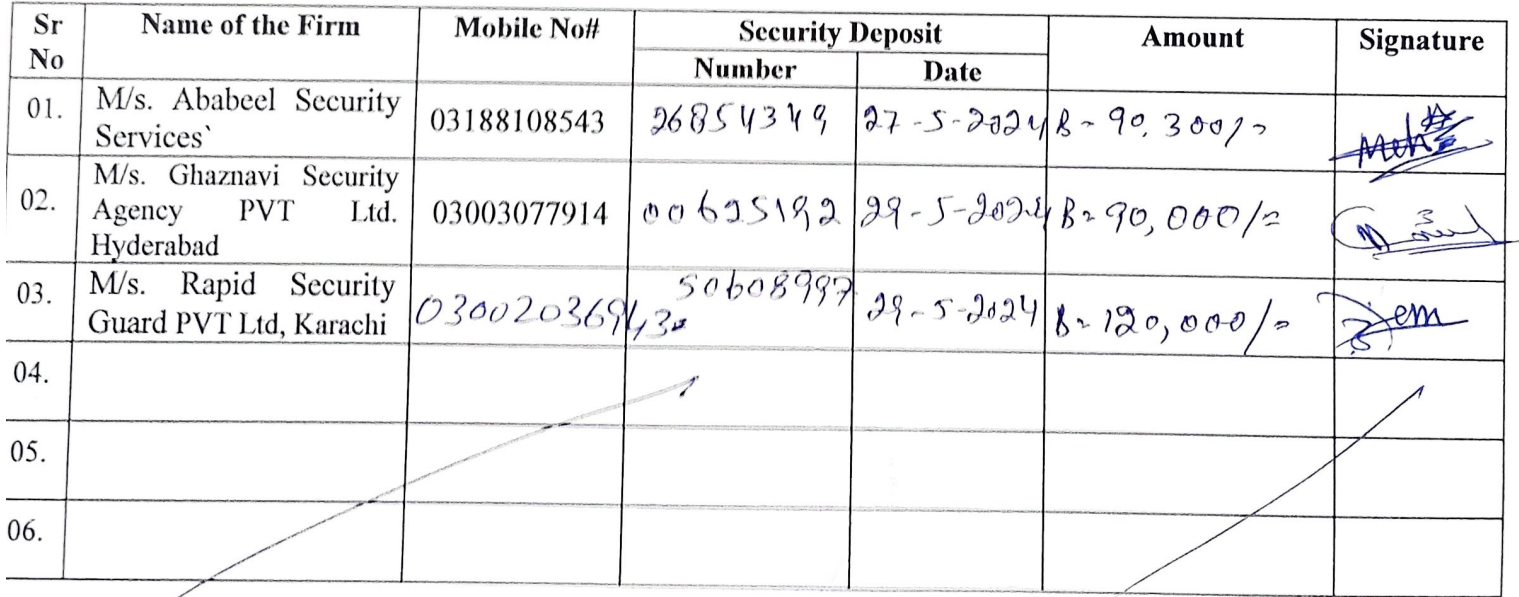 Sr No Name of the Firm Mobile No# Security Deposit Amount Signature
Number Date
01. M/s. Ababeel Security Services` 03188108543 26854349 27-5-2024 B-90,300/=
02. M/s. Ghaznavi Security Agency PVT Ltd. Hyderabad 03003077914 00625192 29-5-2024 B=90,000/=
03. M/s. Rapid Security Guard PVT Ltd, Karachi 03002036943 50608997 29-5-2024 B-120,000/=
04.
05.
06.